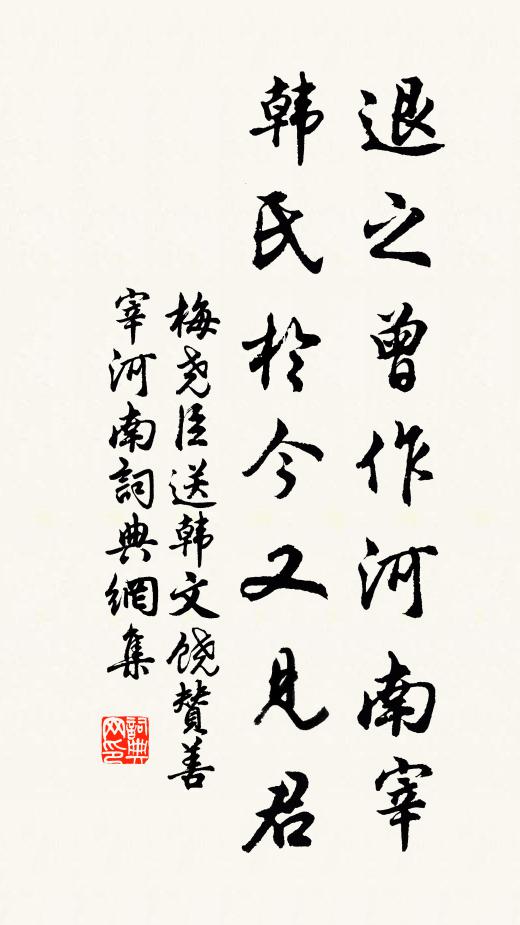 退之曾作河南宰
韩氏於今又见君
梅尧臣送韩文饶赞善
宰河南詞典網集
詞典網印